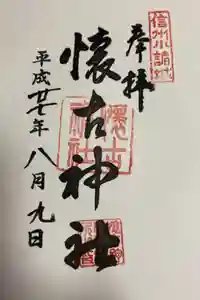 信州小諸
奉拝
懐古神社
平成廿七年八月九日